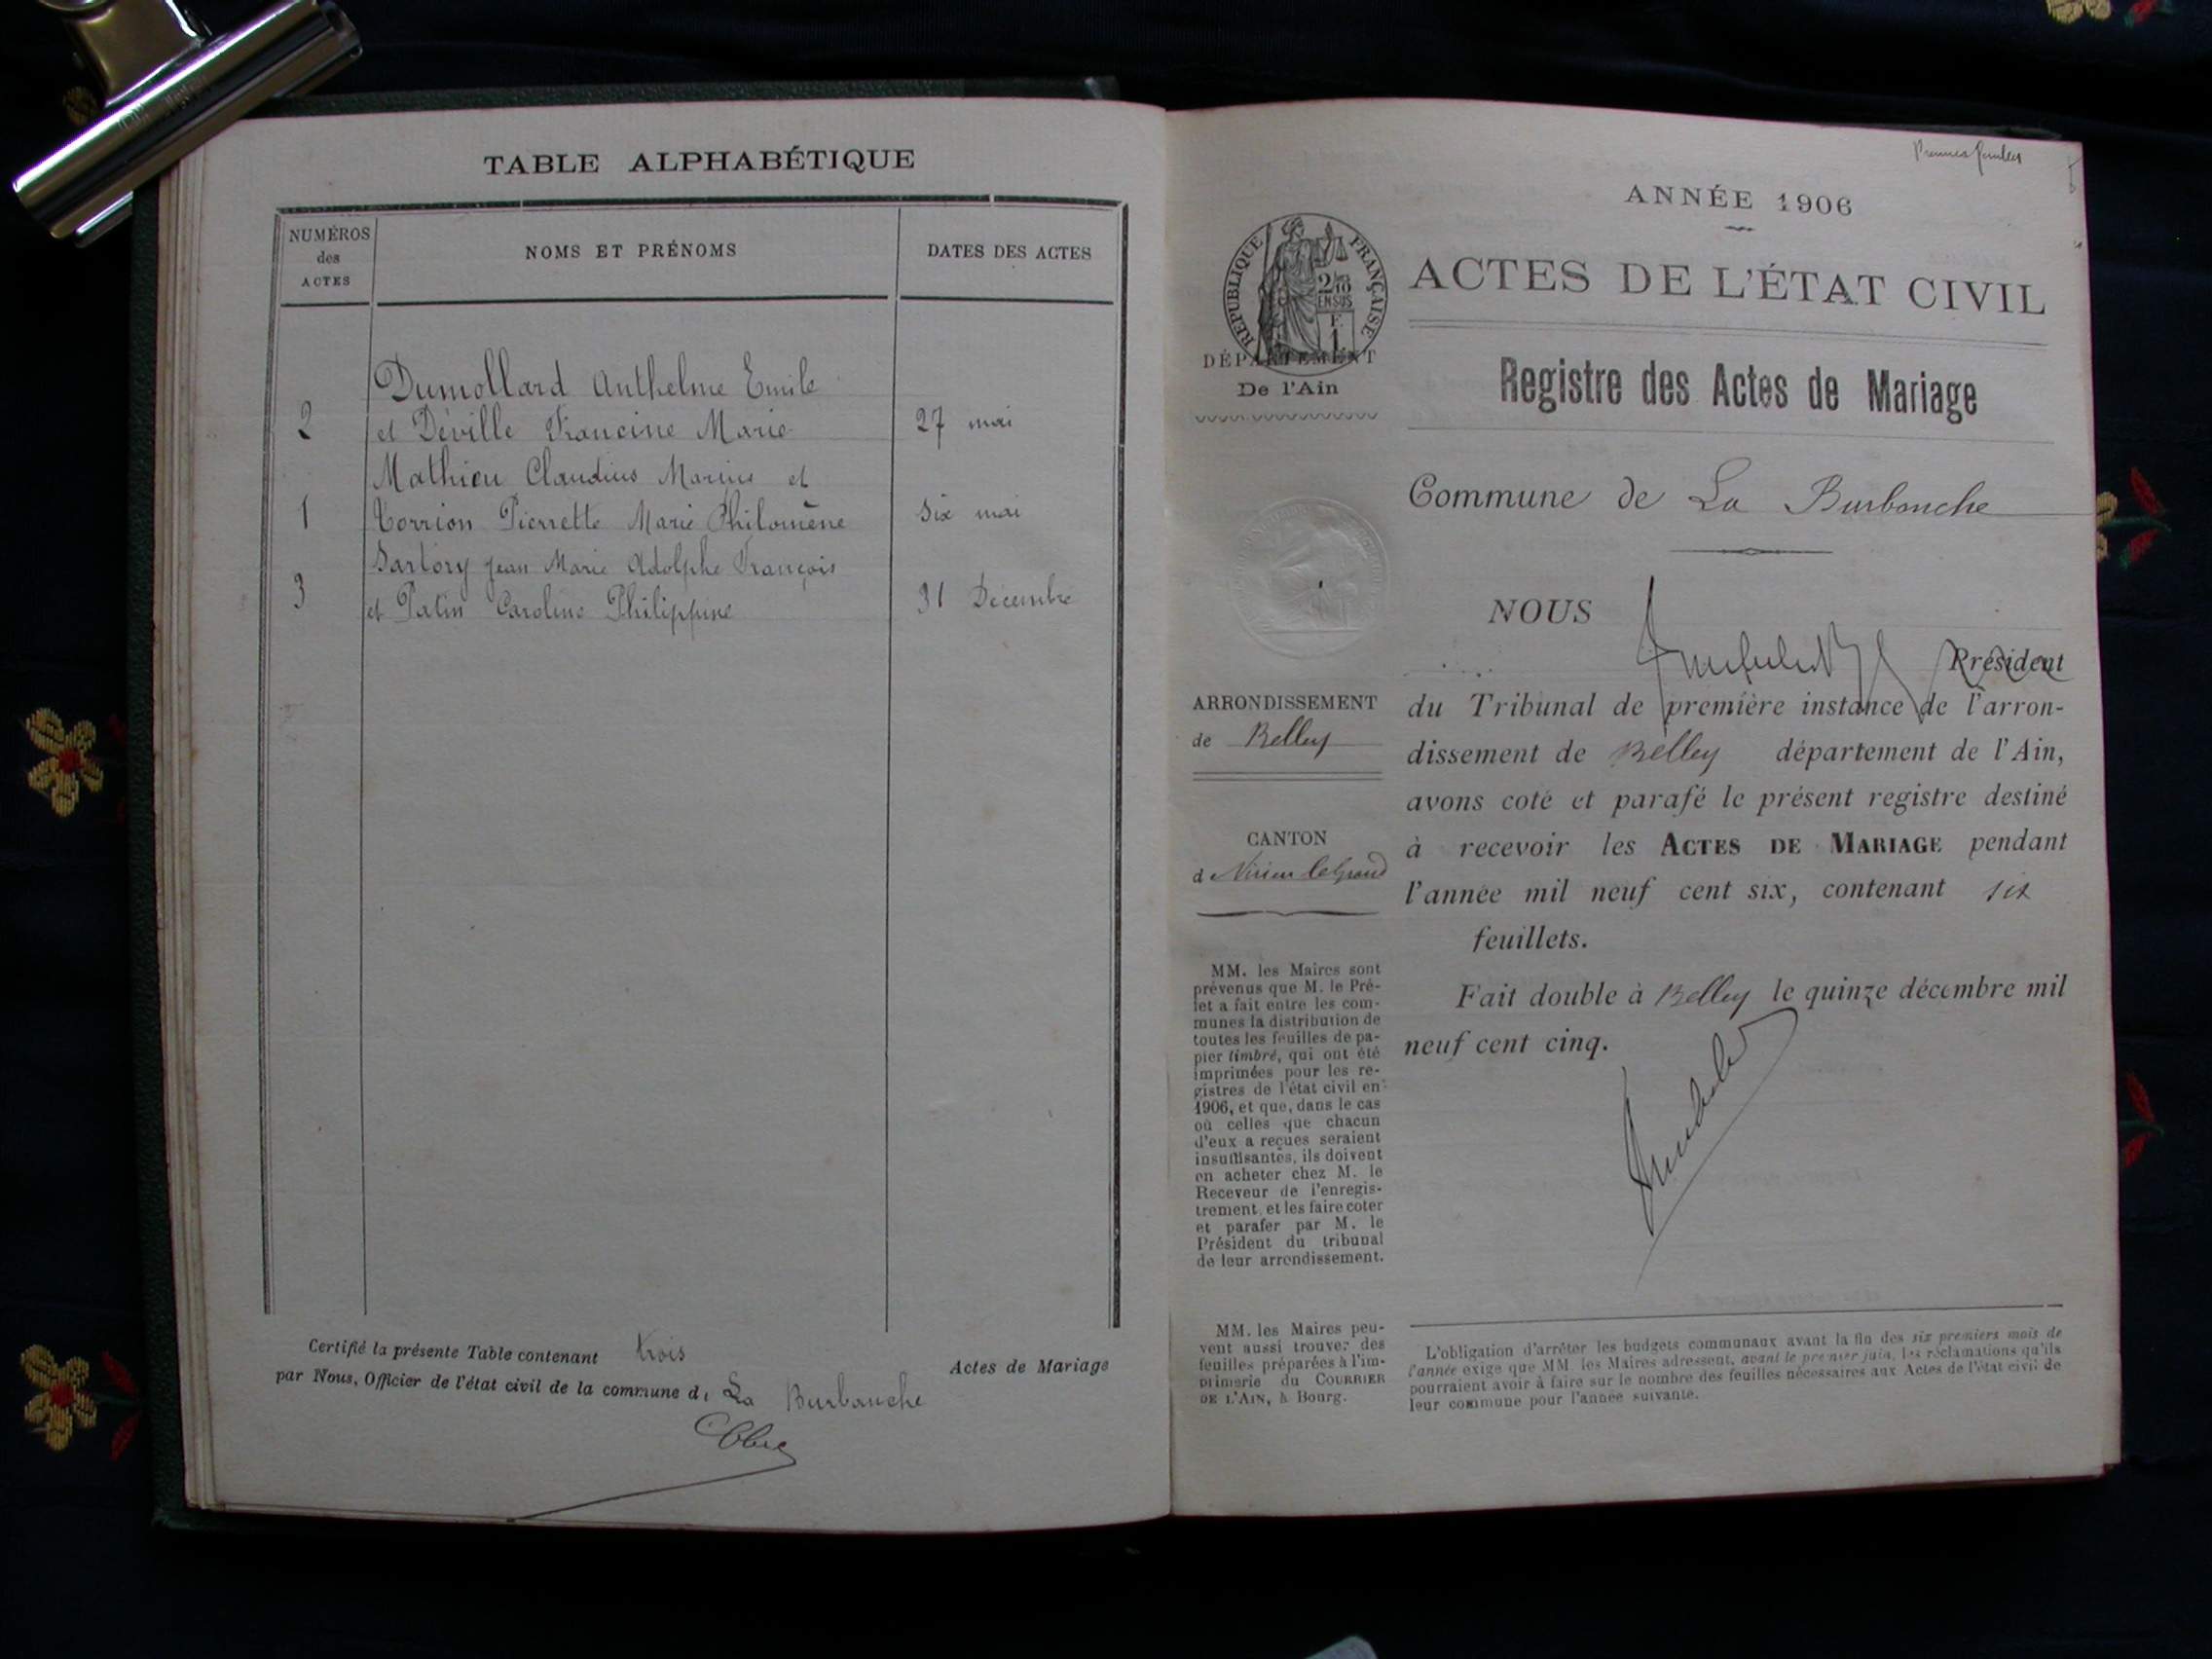 TABLE ALPHABÉTIQUE
NUMÉROS
des
ACTES
NOMS ET PRÉNOMS
DATES DES ACTES
Dumollard Anthelme Emile
2 et Déville Francine Marie 27 mai
Mathieu Claudius Marius et
1 Torrion Pierrette Marie Philomène six mai
Sartory Jean Marie Adolphe François
3 et Patin Caroline Philippine 31 Décembre
Certifié la présente Table contenant trois Actes de Mariage
par Nous, Officier de l'état civil de la commune d La Burbanche
ANNÉE 1906
RÉPUBLIQUE FRANÇAISE
2/10
EN SUS
F.
1
DÉPARTEMENT
De l'Ain
ACTES DE L'ÉTAT CIVIL
Registre des Actes de Mariage
Commune de La Burbanche
NOUS
Président
du Tribunal de première instance de l'arron-
dissement de Belley département de l'Ain,
avons coté et parafé le présent registre destiné
à recevoir les ACTES DE MARIAGE pendant
l'année mil neuf cent six, contenant six
feuillets.
Fait double à Belley le quinze décembre mil
neuf cent cinq.
ARRONDISSEMENT
de Belley
CANTON
d Virieu le Grand
MM. les Maires sont
prévenus que M. le Pré-
fet a fait entre les com-
munes la distribution de
toutes les feuilles de pa-
pier timbré, qui ont été
imprimées pour les re-
gistres de l'état civil en
1906, et que, dans le cas
où celles que chacun
d'eux a reçues seraient
insuffisantes, ils doivent
en acheter chez M. le
Receveur de l'enregis-
trement, et les faire coter
et parafer par M. le
Président du tribunal
de leur arrondissement.
MM. les Maires peu-
vent aussi trouver des
feuilles préparées à l'im-
primerie du COURRIER
DE L'AIN, à Bourg.
L'obligation d'arrêter les budgets communaux avant la fin des six premiers mois de
l'année exige que MM. les Maires adressent, avant le premier juin, les réclamations qu'ils
pourraient avoir à faire sur le nombre des feuilles nécessaires aux Actes de l'état civil de
leur commune pour l'année suivante.